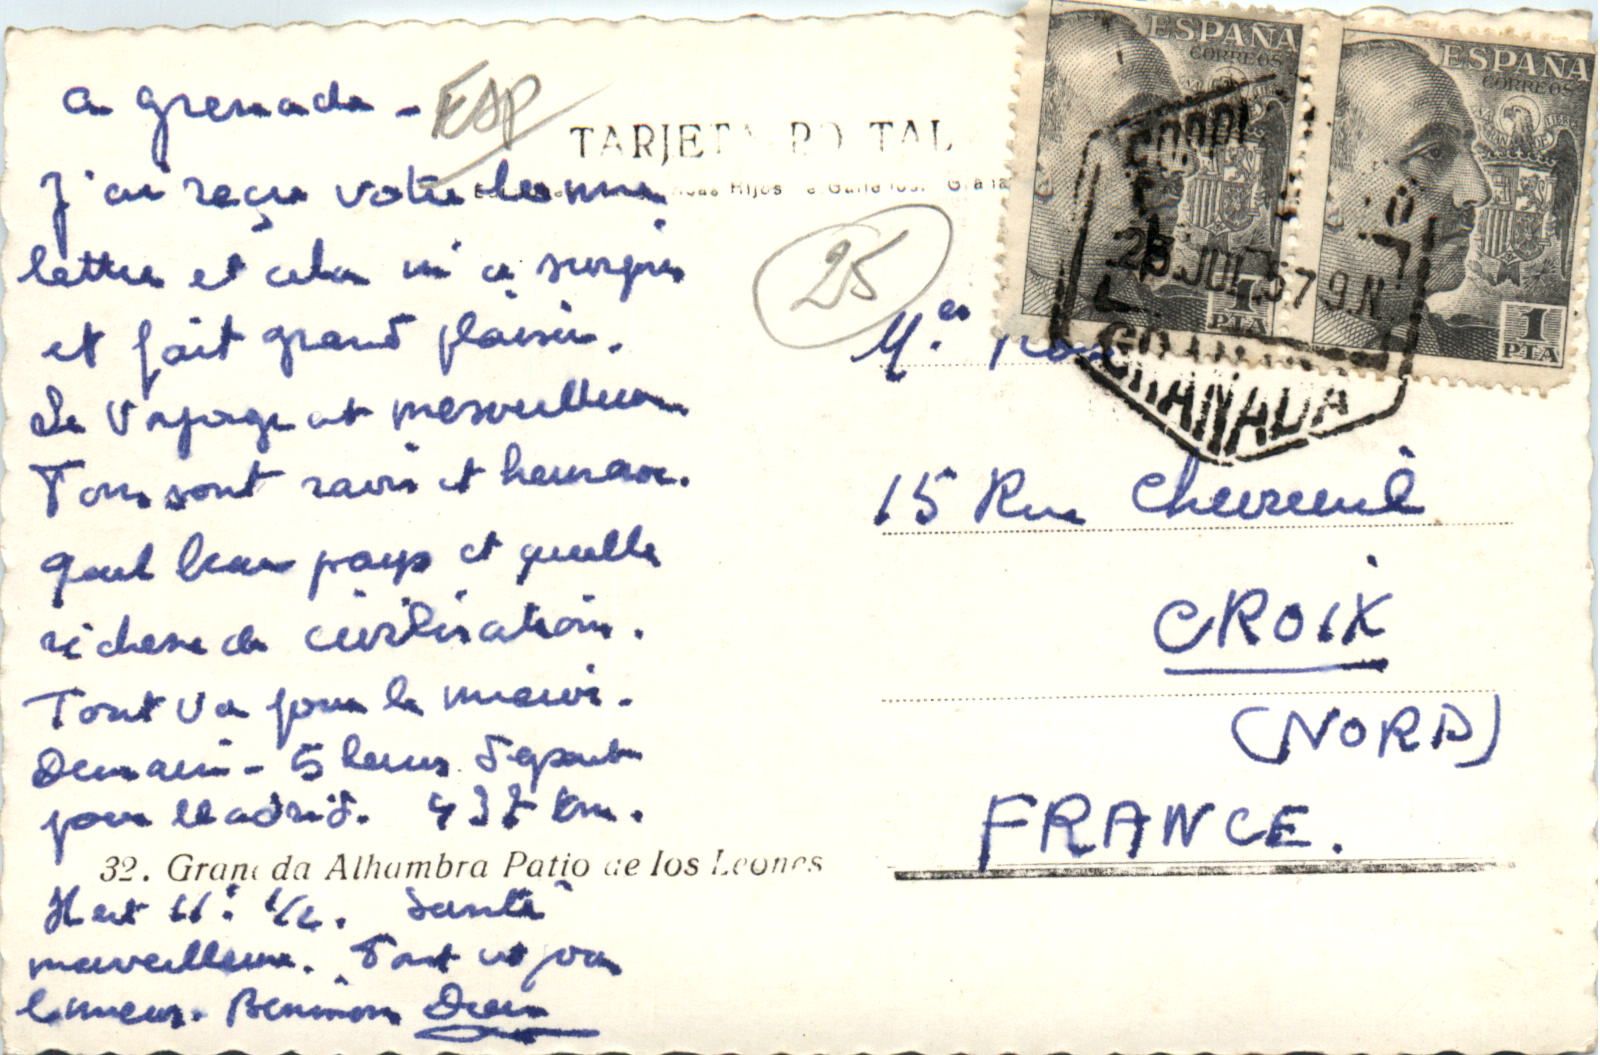 a grenada -
ESP
TARJETA POSTAL
J'ai reçu votre bonne
lettre et cela m'a surpris
et fait grand plaisir.
Le Voyage est merveilleux
Tous sont ravis et heureux.
quel beau pays et quelle
richesse de civilisations.
Tout va pour le mieux.
Demain - 5 heures départ
pour Madrid. 437 km.
32. Granada Alhambra Patio de los Leones
Il est 11h 1/2. Santé
merveilleuse. Tout est pour
le mieux. Bénissons Dieu
25
ESPAÑA
CORREOS
1
PTA
ESPAÑA
CORREOS
1
PTA
25 JUL 57 9.N
GRANADA
15 Rue Chevreuil
CROIX
(NORD)
FRANCE.